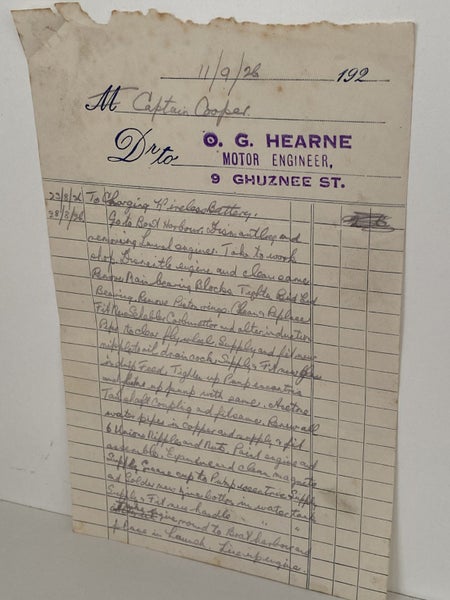 11/9/26 192
M Captain Cooper.
Dr to O. G. HEARNE
MOTOR ENGINEER,
9 GHUZNEE ST.
23/8/26 To Charging Wireless Battery.
28/8/26 Go to Boat Harbour Dismantling and
removing Launch engines. Take to work
shop. Dismantle engine and clean same
Remove Main bearing Blocks. Tighten
Bearing. Remove Piston rings Clean & Replace
Fit New Schebler Carburettor and alter induction
Pipe to clear flywheel. Supply and fit new
nipple to oil drain cock. Supply & Fit new Glass
in drip Feed. Tighten up Pump
make up pump with same.
Tail shaft Coupling and fit same. Renew all
water pipes in copper and supply & fit
6 Unions Nipples and Nuts. Paint engine and
assemble. Examine and clean magneto
Supply Grease cup to Pump Supply
and Solder new bottom in water tank
Supply & Fit new handle " " "
engine round to Boat harbour and
place in Launch. Line up engine.